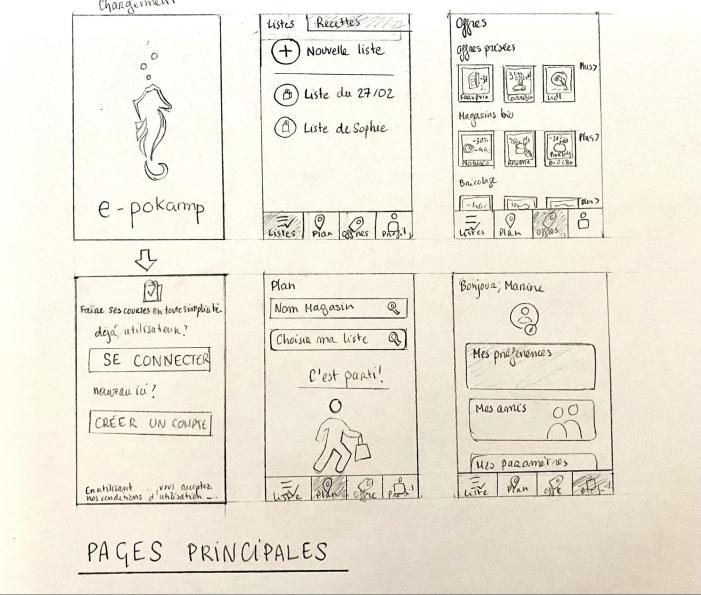 Chargement
e-pokamp
Listes Recettes
Nouvelle liste
Liste du 27/02
Liste de Sophie
Listes Plan Offres Profil
Offres
Offres privées
Plus>
Franprix Lidl
Magasins bio
Plus>
-30%
Bricolage
Plus>
Listes Plan Offres
Faire ses courses en toute simplicité.
déjà utilisateur?
SE CONNECTER
nouveau ici?
CRÉER UN COMPTE
En utilisant ... vous acceptez
nos conditions d'utilisation ...
Plan
Nom Magasin
Choisir ma liste
C'est parti!
Liste Plan Offre Profil
Bonjour, Marine
Mes préférences
Mes amis
Mes paramètres
Liste Plan Offre Profil
PAGES PRINCIPALES